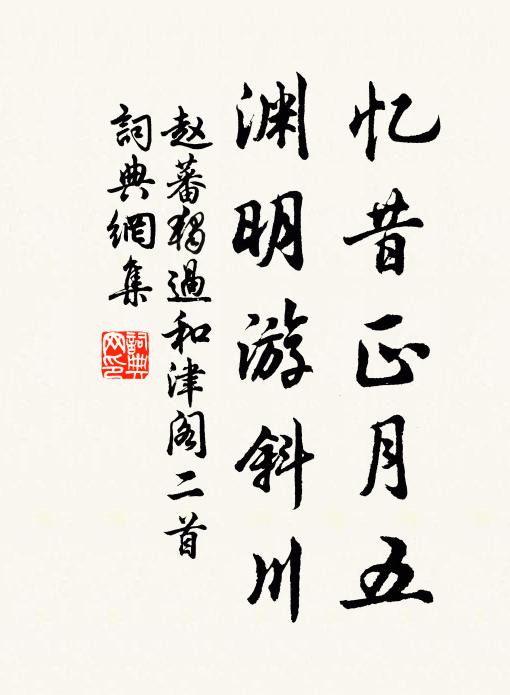 忆昔正月五
渊明游斜川
赵蕃独过和津阁二首
詞典網集
詞典网印